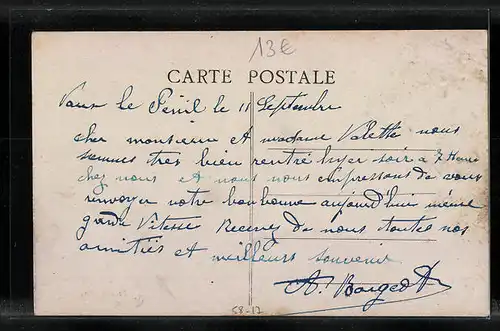 13€
CARTE POSTALE
Vaux le Pénil le 11 Septembre
cher monsieur et madame Valette nous
sommes très bien rentré hyer soir a 7 Heure
chez nous et nous nous empressons de vous
renvoyer votre bonbonne aujourd'hui même
grande Vitesse Recevez de nous toutes nos
amitiés et meilleurs souvenir
A. Borgeot
58-17